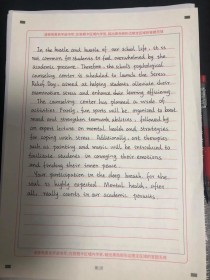 In the hustle and bustle of our school life, it is
not common for students to feel overwhelmed by the
academic pressure. Therefore, the school's psychological
counseling center is scheduled to launch the Stress
Relief Day, aimed at helping students alleviate their
examination stress and enhance their learning efficiency.
The counseling center has planned a wide of
activities. Firstly, fun sports will be organized to boost
mood and strengthen teamwork abilities, followed by
an expert lecture on mental health and strategies
for coping with stress. Additionally, art therapies
such as painting and music will be introduced to
facilitate students in conveying their emotions
and finding their inner peace.
Your participation in the deep breath for the
soul is highly expected. Mental health, after
all, really counts in our academic pursuits.